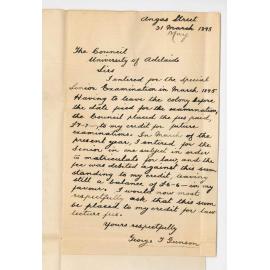 Angas Street
31 March 1895
May
The Council
University of Adelaide
Sirs
I entered for the Special
Senior Examination in March 1895
Having to leave the colony before
the date fixed for the examination,
the Council placed the fee paid,
to my credit for future
examinations. In March of the
present year, I entered for the
Senior in one subject in order
to matriculate for law, and the
fee was debited against this sum
standing to my credit, leaving
still a balance of £6-6- in my
favour. I would now most
respectfully ask that this sum
be placed to my credit for law
lecture fees.
Yours respectfully
George J